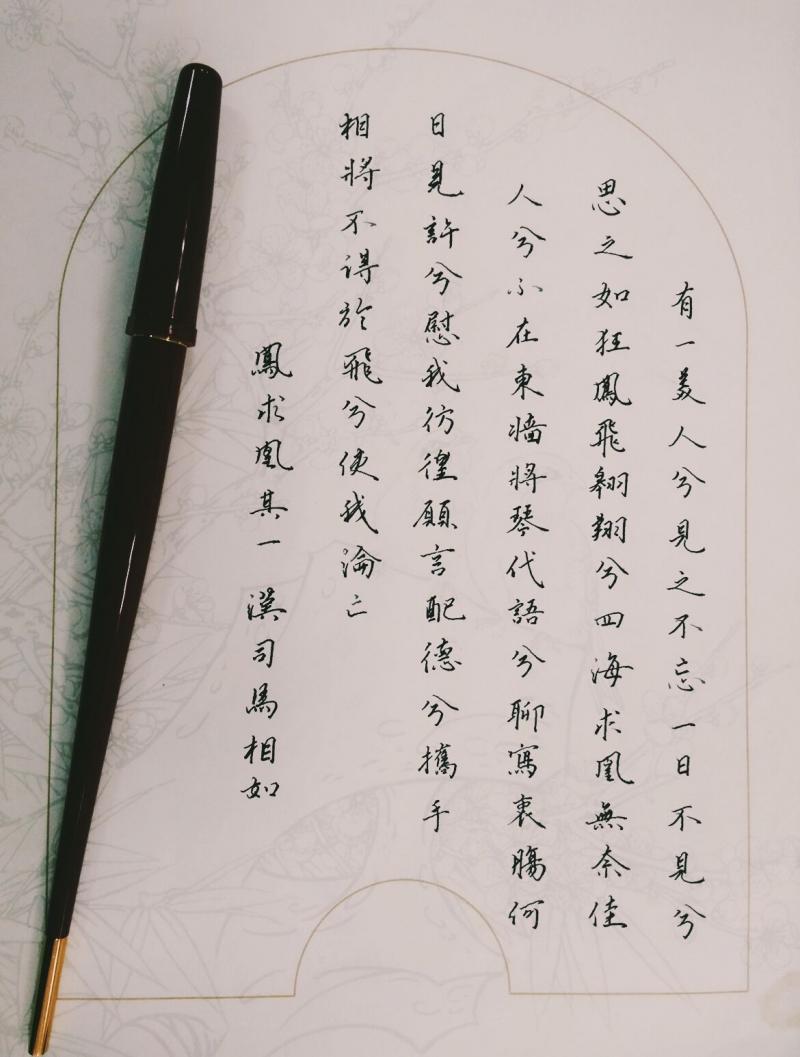 有一美人兮見之不忘一日不見兮
思之如狂鳳飛翱翔兮四海求凰無奈佳
人兮不在東牆將琴代語兮聊寫衷腸何
日見許兮慰我彷徨願言配德兮攜手
相將不得於飛兮使我淪亡
鳳求凰其一 漢司馬相如